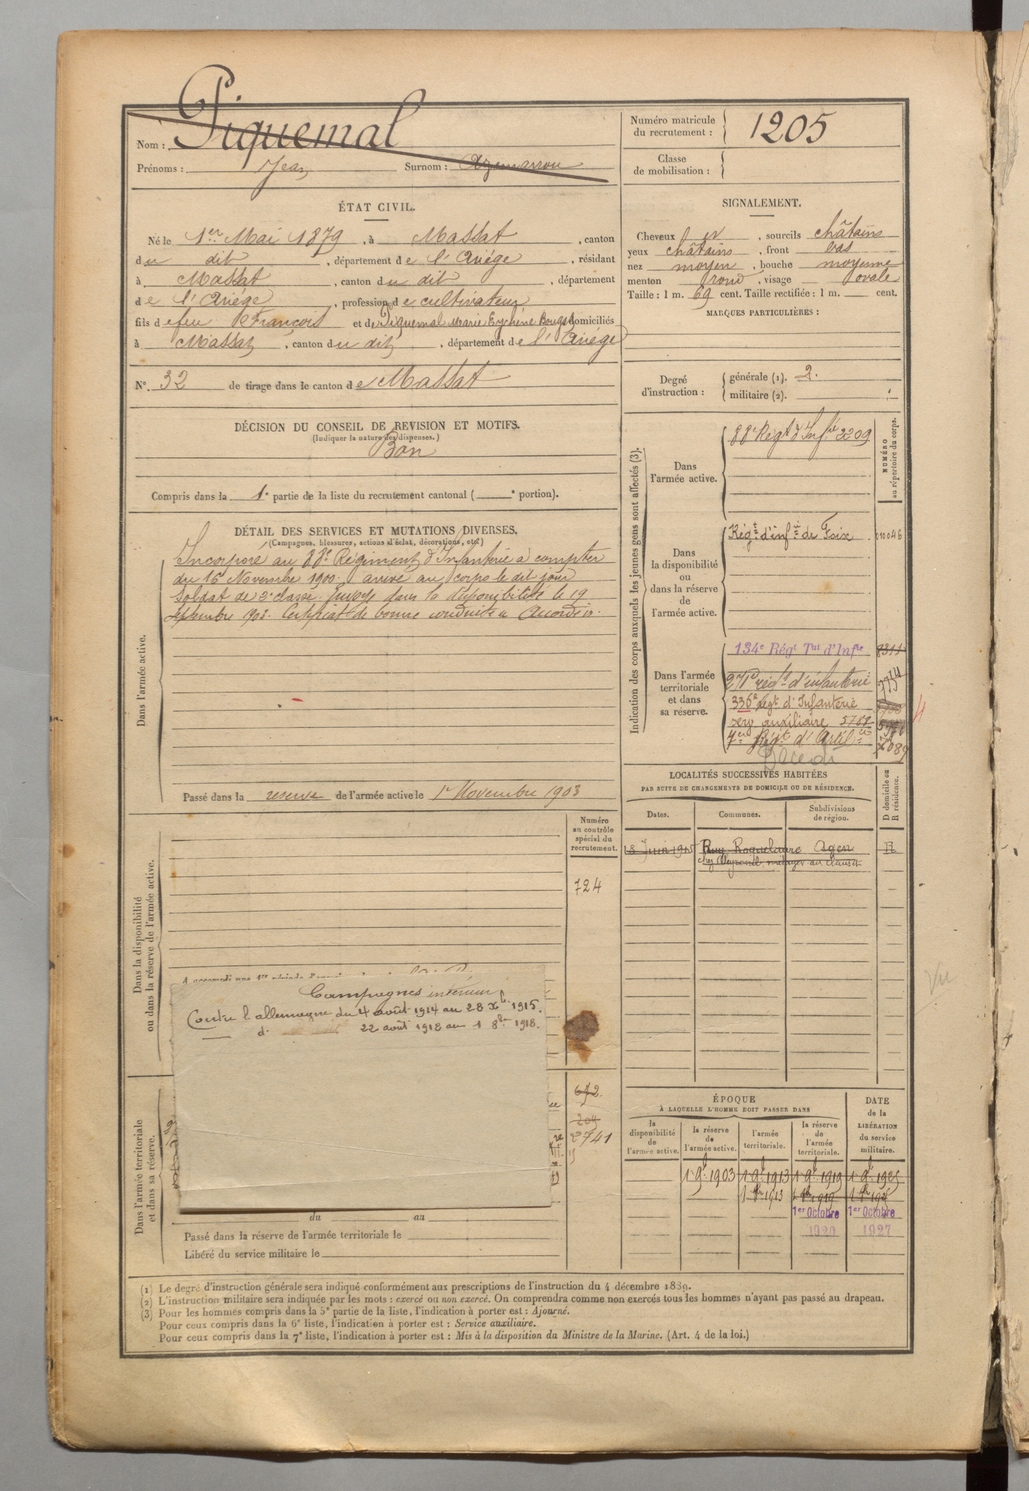 Nom : Piquemal
Prénoms : Jean Surnom : Azemarrou
Numéro matricule du recrutement : 1205
Classe de mobilisation :
ÉTAT CIVIL.
Né le 1er Mai 1879, à Massat, canton
du dit, département de l'Ariège, résidant
à Massat, canton du dit, département
de l'Ariège, profession de cultivateur
fils de feu François et de Piquemal Marie domiciliés
à Massat, canton du dit, département de l'Ariège
SIGNALEMENT.
Cheveux et, sourcils châtains
yeux châtains, front bas
nez moyen, bouche moyenne
menton rond, visage ovale
Taille : 1 m. 69 cent. Taille rectifiée : 1 m. cent.
MARQUES PARTICULIÈRES :
N°. 32 de tirage dans le canton de Massat
Degré d'instruction : générale (1). 2.
militaire (2).
DÉCISION DU CONSEIL DE REVISION ET MOTIFS.
(Indiquer la nature des dispenses.)
Bon
Compris dans la 1e partie de la liste du recrutement cantonal ( e portion).
DÉTAIL DES SERVICES ET MUTATIONS DIVERSES.
(Campagnes, blessures, actions d'éclat, décorations, etc.)
Dans l'armée active.
Incorporé au 88e Régiment d'Infanterie à compter
du 16 Novembre 1900 arrivé au corps le dit jour
Soldat de 2e classe. Envoyé dans la disponibilité le 19
septembre 1903. Certificat de bonne conduite accordé.
Passé dans la réserve de l'armée active le 1r Novembre 1903
Indication des corps auxquels les jeunes gens sont affectés (3).
NUMÉRO au répertoire du corps.
Dans l'armée active.
88e Régt d'Infie 2209
Dans la disponibilité ou dans la réserve de l'armée active.
Régt d'infie de Foix
Dans l'armée territoriale et dans sa réserve.
134e Régt Tal d'Infie
271e régt d'infanterie
336e régt d'Infanterie
serv auxiliaire 5768
7e Régt d'Artil
LOCALITÉS SUCCESSIVES HABITÉES
PAR SUITE DE CHANGEMENTS DE DOMICILE OU DE RÉSIDENCE.
D domicile ou R résidence.
Dates. Communes. Subdivisions de région.
Rue Roquelaure Agen R
Numéro au contrôle spécial du recrutement.
724
Dans la disponibilité ou dans la réserve de l'armée active.
Campagnes
Contre l'allemagne du 4 août 1914 au 28 Xbre 1915.
d° 22 août 1918 au 1 8bre 1918.
672
2741
Dans l'armée territoriale et dans sa réserve.
du au
Passé dans la réserve de l'armée territoriale le
Libéré du service militaire le
ÉPOQUE
À LAQUELLE L'HOMME DOIT PASSER DANS
DATE de la LIBÉRATION du service militaire.
la disponibilité de l'armée active.
la réserve de l'armée active.
l'armée territoriale.
la réserve de l'armée territoriale.
1r 9bre 1903 1r 9bre 1913 1r 9bre 1919 1r 9bre 1925
1er Octobre 1er Octobre
1927
(1) Le degré d'instruction générale sera indiqué conformément aux prescriptions de l'instruction du 4 décembre 1889.
(2) L'instruction militaire sera indiquée par les mots : exercé ou non exercé. On comprendra comme non exercés tous les hommes n'ayant pas passé au drapeau.
(3) Pour les hommes compris dans la 5e partie de la liste, l'indication à porter est : Ajourné.
Pour ceux compris dans la 6e liste, l'indication à porter est : Service auxiliaire.
Pour ceux compris dans la 7e liste, l'indication à porter est : Mis à la disposition du Ministre de la Marine. (Art. 4 de la loi.)
Vu